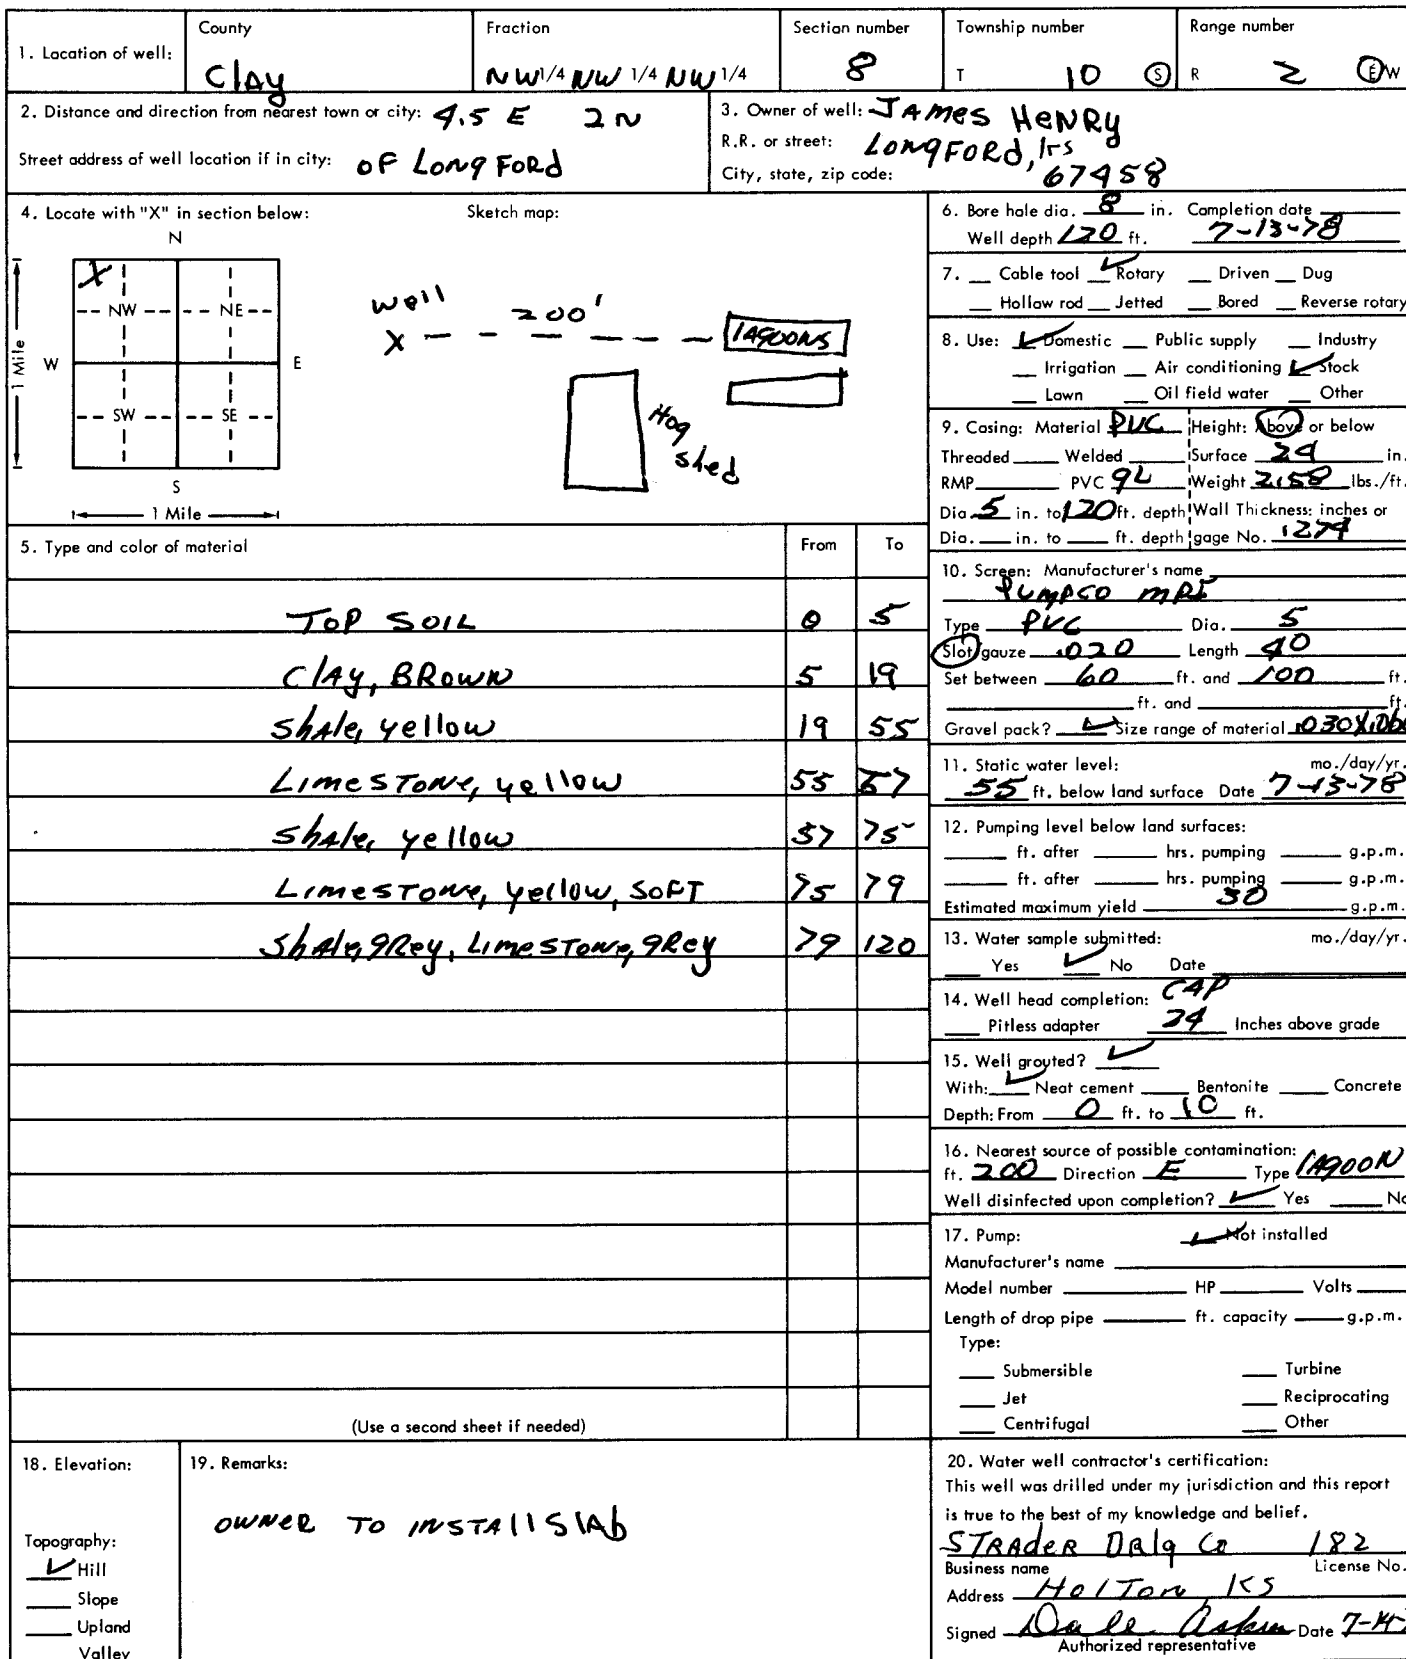 County Fraction Section number Township number Range number
1. Location of well: Clay NW 1/4 NW 1/4 NW 1/4 8 T 10 S R 2 E W
2. Distance and direction from nearest town or city: 4.5 E 2 N
Street address of well location if in city: OF LONGFORD
3. Owner of well: JAMES HENRY
R.R. or street: LONGFORD, KS
City, state, zip code: 67458
4. Locate with "X" in section below: Sketch map:
N
X
NW NE
W E
SW SE
S
1 Mile
1 Mile
well
X 200' LAGOONS
Hog
shed
5. Type and color of material From To
TOP SOIL 0 5
CLAY, BROWN 5 19
Shale, yellow 19 55
LIMESTONE, yellow 55 57
Shale, yellow 57 75
LIMESTONE, yellow, SOFT 75 79
Shale, gRey, LIMESTONE, gRey 79 120
(Use a second sheet if needed)
6. Bore hole dia. 8 in. Completion date
Well depth 120 ft. 7-13-78
7. Cable tool ✓ Rotary Driven Dug
Hollow rod Jetted Bored Reverse rotary
8. Use: ✓ Domestic Public supply Industry
Irrigation Air conditioning ✓ Stock
Lawn Oil field water Other
9. Casing: Material PVC Height: Above or below
Threaded Welded Surface 24 in.
RMP PVC 9L Weight 2.58 lbs./ft.
Dia. 5 in. to 120 ft. depth Wall Thickness: inches or
Dia. in. to ft. depth gage No.
10. Screen: Manufacturer's name
Type PVC Dia. 5
Slot/gauze .020 Length 40
Set between 60 ft. and 100 ft.
ft. and ft.
Gravel pack? ✓ Size range of material
11. Static water level: mo./day/yr.
55 ft. below land surface Date 7-13-78
12. Pumping level below land surfaces:
ft. after hrs. pumping g.p.m.
ft. after hrs. pumping g.p.m.
Estimated maximum yield 30 g.p.m.
13. Water sample submitted: mo./day/yr.
Yes ✓ No Date
14. Well head completion: CAP
Pitless adapter 24 Inches above grade
15. Well grouted? ✓
With: ✓ Neat cement Bentonite Concrete
Depth: From 0 ft. to 10 ft.
16. Nearest source of possible contamination:
ft. 200 Direction E Type LAGOON
Well disinfected upon completion? ✓ Yes No
17. Pump: ✓ Not installed
Manufacturer's name
Model number HP Volts
Length of drop pipe ft. capacity g.p.m.
Type:
Submersible Turbine
Jet Reciprocating
Centrifugal Other
18. Elevation:
Topography:
✓ Hill
Slope
Upland
Valley
19. Remarks:
OWNER TO INSTALL SLAB
20. Water well contractor's certification:
This well was drilled under my jurisdiction and this report
is true to the best of my knowledge and belief.
STRADER DRLG CO 182
Business name License No.
Address Holton, KS
Signed Dale Date 7-14-
Authorized representative